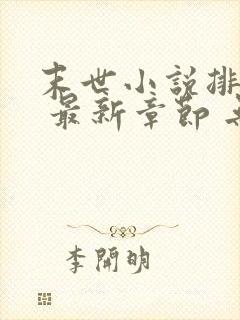 末世小說排
最新章節
李開明